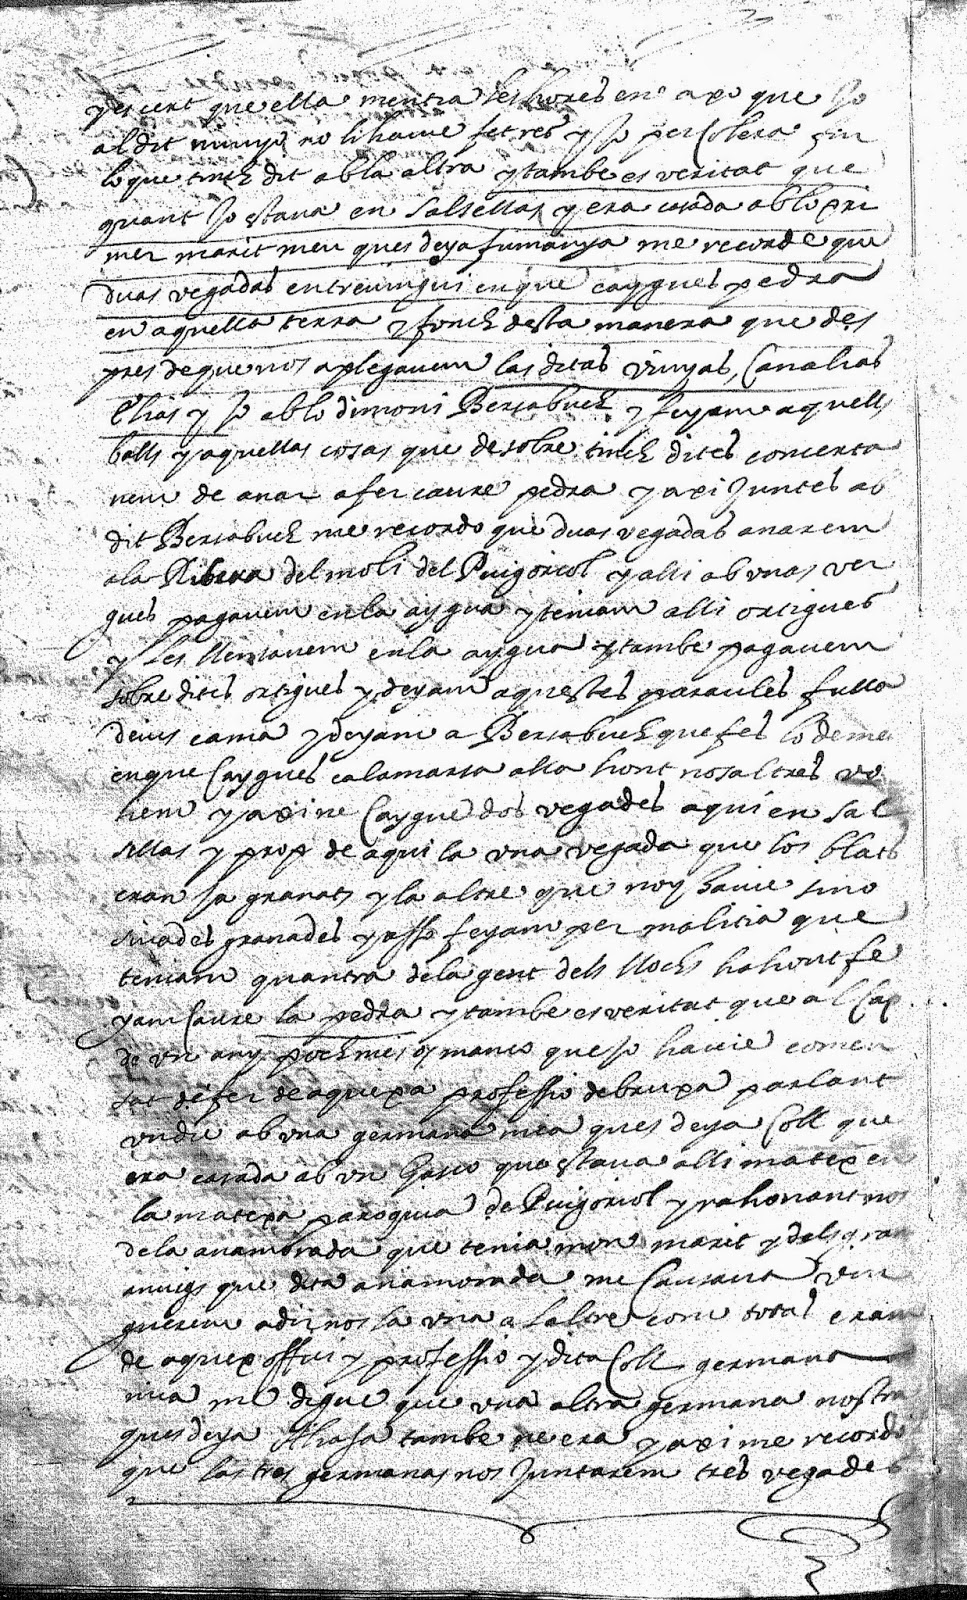 y es cert que ella mentia les hores en axo que jo
al dit minyo no li havie fet res y jo per colera
lo que tinch dit ab la altra y tambe es veritat que
quant jo stava en Salsellas y era casada ab lo pri
mer marit meu ques deya fumanya me recorde que
duas vegadas entrevingui en que caygues pedra
en aquella terra y fonch desta manera que des
pres de que nos aplegavem las ditas vinyas, Canalias
Elias y jo ab lo dimoni Bersabuch y feyam aquells
balls y aquellas cosas que desobre tinch dites concerta
vem de anar a fer caure pedra y axi juntes ab
dit Bersabuch me recordo que duas vegadas anarem
a la Ribera del moli del Puigoriol y alli ab unas ver
gues pagavem en la aygua y teniam alli ortigues
y les llensavem en la aygua y tambe pagavem
sobre dites ortigues y deyam aquestes paraules fulla
deius cama y deyam a Bersabuch que fes lo deme
en que caygues calamarsa alla hont nosaltres vo
liem y axi ne caygue dos vegades aqui en Sal
sellas y prop de aqui la una vegada que los blats
eran ja granats y la altre que noy havie sino
sivades granades y asso feyam per malitia que
teniam quontra de la gent dels llochs hahont fe
yam caure la pedra y tambe es veritat que al cap
de un any poch mes o manco que jo havie comen
sat de fer de aquexa professio de bruxa parlant
un die ab una germana mea ques deya Coll que
era casada ab un Gasco que stava alli matex en
la matexa paroquia de Puigoriol y rahonant nos
de la anamorada que tenia mon marit y dels gran
anuigs que dita anamorada me causava vin
guerem a dirnos la una a laltre com totas eram
de aquex offici y professio y dita Coll germana
mia me digue que una altra germana nostra
ques deya tambe ne era y axi me recordo
que las tres germanas nos juntarem tres vegades